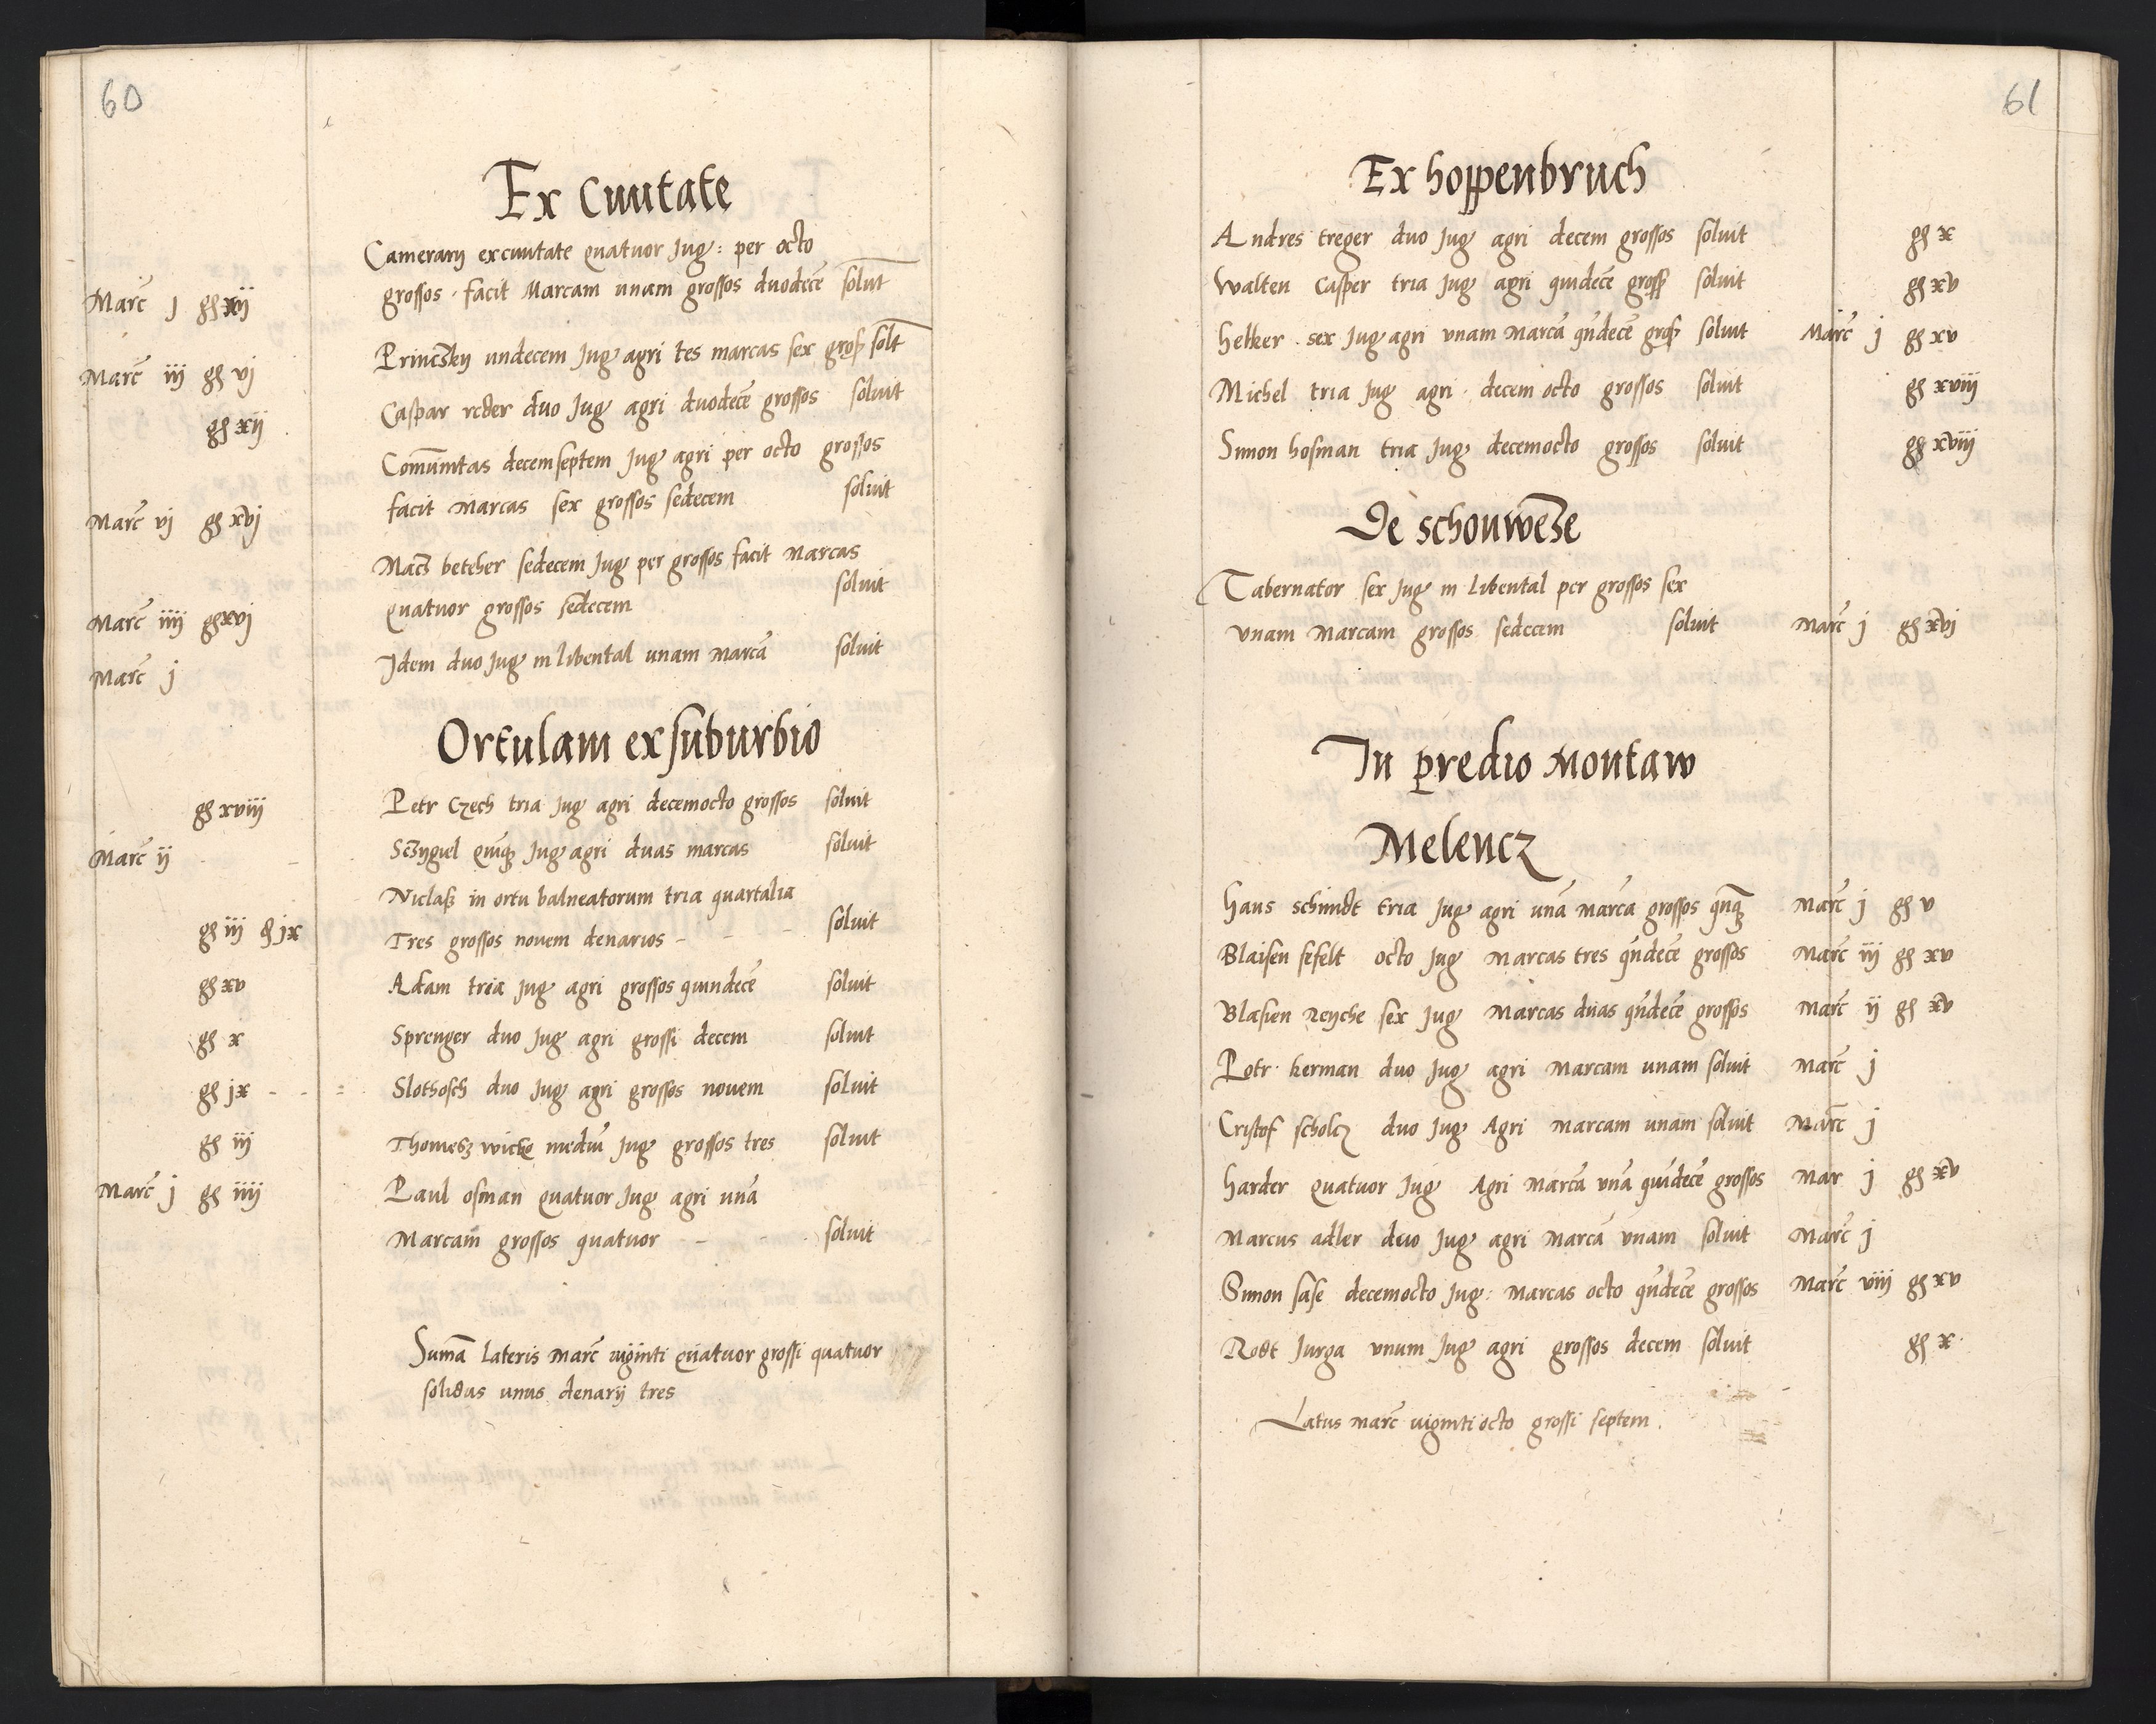 60
Ex Ciuitate
Camerarij ex ciuitate quatuor Jug: per octo
Marc j gs xij grossos facit Marcam unam grossos duodecē soluit
Marc iij gs vj undecem Jug agri tes marcas sex gross solt
gs xij Caspar duo Jug agri duodecē grossos soluit
Comūnitas decemseptem Jug agri per octo grossos
Marc vj gs xvj facit Marcas sex grossos sedecem soluit
betcher sedecem Jug per grossos facit Marcas
Marc iiij gs xvj quatuor grossos sedecem soluit
Marc j Idem duo Jug in libental unam marcā soluit
Ortulani ex suburbio
gs xviij Petr Czech tria Jug agri decemocto grossos soluit
Marc ij quīqz Jug agri duas marcas soluit
Niclass in ortu balneatorum tria quartalia
gs iij d jx Tres grossos nouem denarios - - - soluit
gs xv Adam tria Jug agri grossos quindecē soluit
gs x Sprenger duo Jug agri grossi decem soluit
gs jx - - = Slothosch duo Jug agri grossos nouem soluit
gs iij wicke mediū Jug grossos tres soluit
Marc j gs iiij Paul osman quatuor Jug agri unā
Marcam grossos quatuor - - soluit
Sumā Lateris Marc viginti quatuor grossi quatuor
solidus unus denarij tres
61
Ex hoppenbruch
Andres treger duo Jug agri decem grossos soluit gs x
Walten Casper tria Jug agri quidecē gross soluit gs xv
helker sex Jug agri vnam Marcā qndecē gross soluit Marc j gs xv
Michel tria Jug agri decem octo grossos soluit gs xviij
Simon hosman tria Jug decemocto grossos soluit gs xviij
De schonwese
Tabernator sex Jug in libental per grossos sex
vnam Marcam grossos sedecem soluit Marc j gs xvj
In predio Montaw
Melencz
Hans schmidt tria Jug agri unā marca grossos qnqz Marc j gs v
Blaisen sefelt octo Jug Marcas tres qndecē grossos Marc iij gs xv
Blasien Reyche sex Jug Marcas duas qndecē grossos Marc ij gs xv
Petr kerman duo Jug agri Marcam unam soluit Marc j
Cristof scholcz duo Jug Agri Marcam unam soluit Marc j
harder quatuor Jug Agri Marcā vnā quidecē grossos Mar j gs xv
Marcus adler duo Jug agri Marcā vnam soluit Marc j
Simon sase decemocto Jug: Marcas octo qndecē grossos Marc viij gs xv
Rodt Jurga vnum Jug agri grossos decem soluit gs x
Latus Marc viginti octo grossi septem.